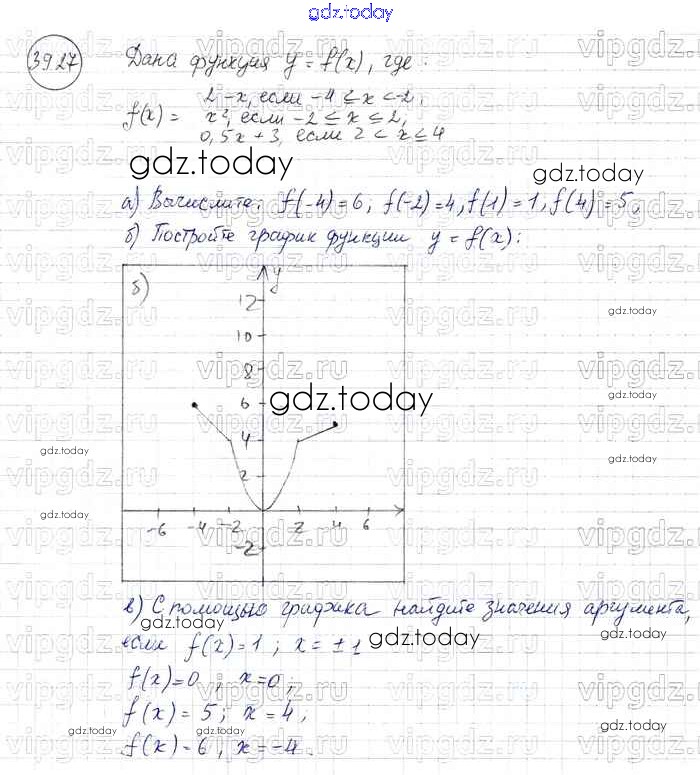 gdz.today
39.27 Дана функция y = f(x), где:
2-x, если -4 ≤ x < -2,
f(x) = x², если -2 ≤ x ≤ 2,
0,5x + 3, если 2 < x ≤ 4
gdz.today gdz.today
а) Вычислите: f(-4)=6, f(-2)=4, f(1)=1, f(4)=5,
б) Постройте график функции y = f(x):
б) y
12
10 gdz.today
8
6 gdz.today
4
gdz.today 2 gdz.today
gdz.today -6 -4 -2 2 4 6
-2
в) С помощью графика найдите значения аргумента,
gdz.today gdz.today gdz.today
если f(x)=1; x = ±1
f(x)=0, x=0;
f(x)=5; x=4,
gdz.today gdz.today
f(x)=6, x=-4.